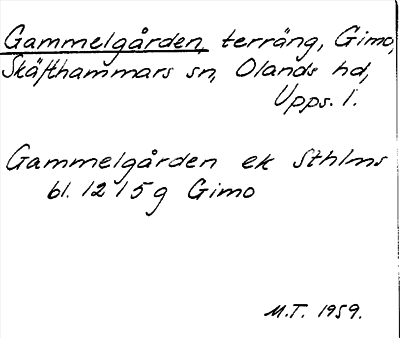 Gammelgården, terräng, Gimo,
Skäfthammars sn, Olands hd,
Upps. l.
Gammelgården ek Sthlms
bl. 12 I 5 g Gimo
M.T. 1959.